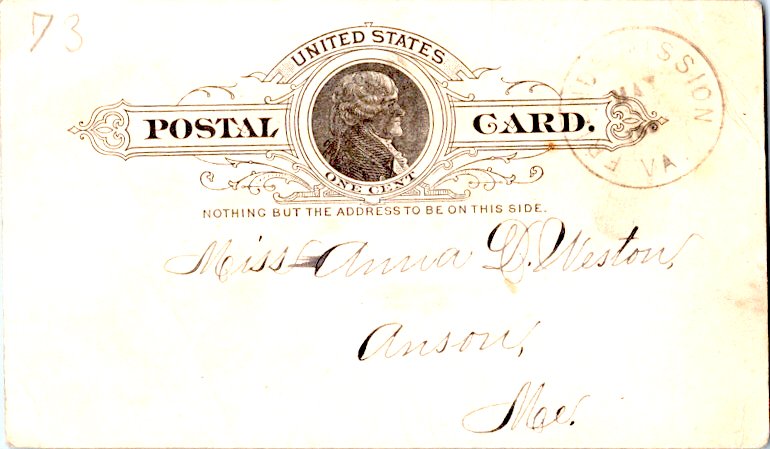 73
UNITED STATES
POSTAL CARD.
ONE CENT
NOTHING BUT THE ADDRESS TO BE ON THIS SIDE.
MISSION
MAY
VA
Miss Anna D. Weston,
Anson,
Me.